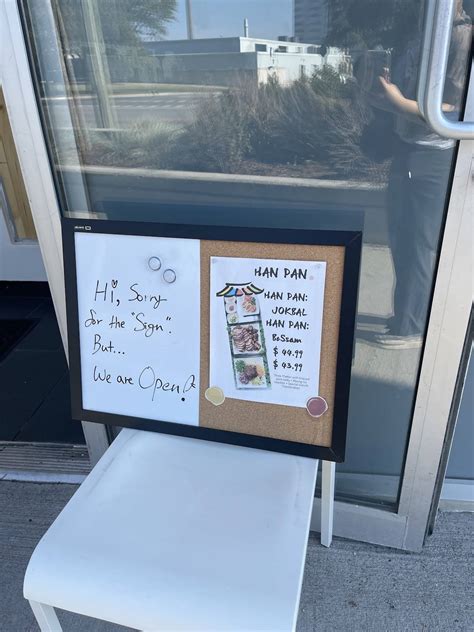 Hi, Sorry
for the "Sign".
But...
We are Open!
HAN PAN
HAN PAN:
JOKBAL
HAN PAN:
BoSSam
$ 44.99
$ 43.99